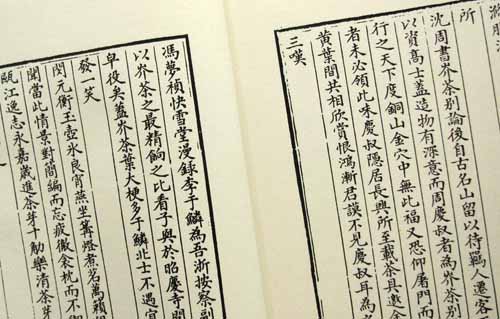 所
沈周書岕茶別論後自古名山留以待羈人遷客
以資高士蓋造物有深意而周慶叔者為岕茶別
行之天下度銅山金穴中無此福又恐仰屠門而
者未必領此味慶叔隱居長興所至載茶具邀余
黃葉間共相欣賞恨鴻漸君謨不見慶叔耳為
三嘆
馮夢禎快雪堂漫錄李于鱗為吾浙按察副
以岕茶之最精餉之比看子與於昭慶寺問
皁役矣蓋岕茶葉大梗多于鱗北士不遇宜
發笑
閔元衡玉壺冰良宵燕坐篝燈煮茗萬籟俱
聞當此情景對簡編而忘疲徹衾枕而不御
甌江逸志永嘉歲進茶芽十觔樂清茶芽